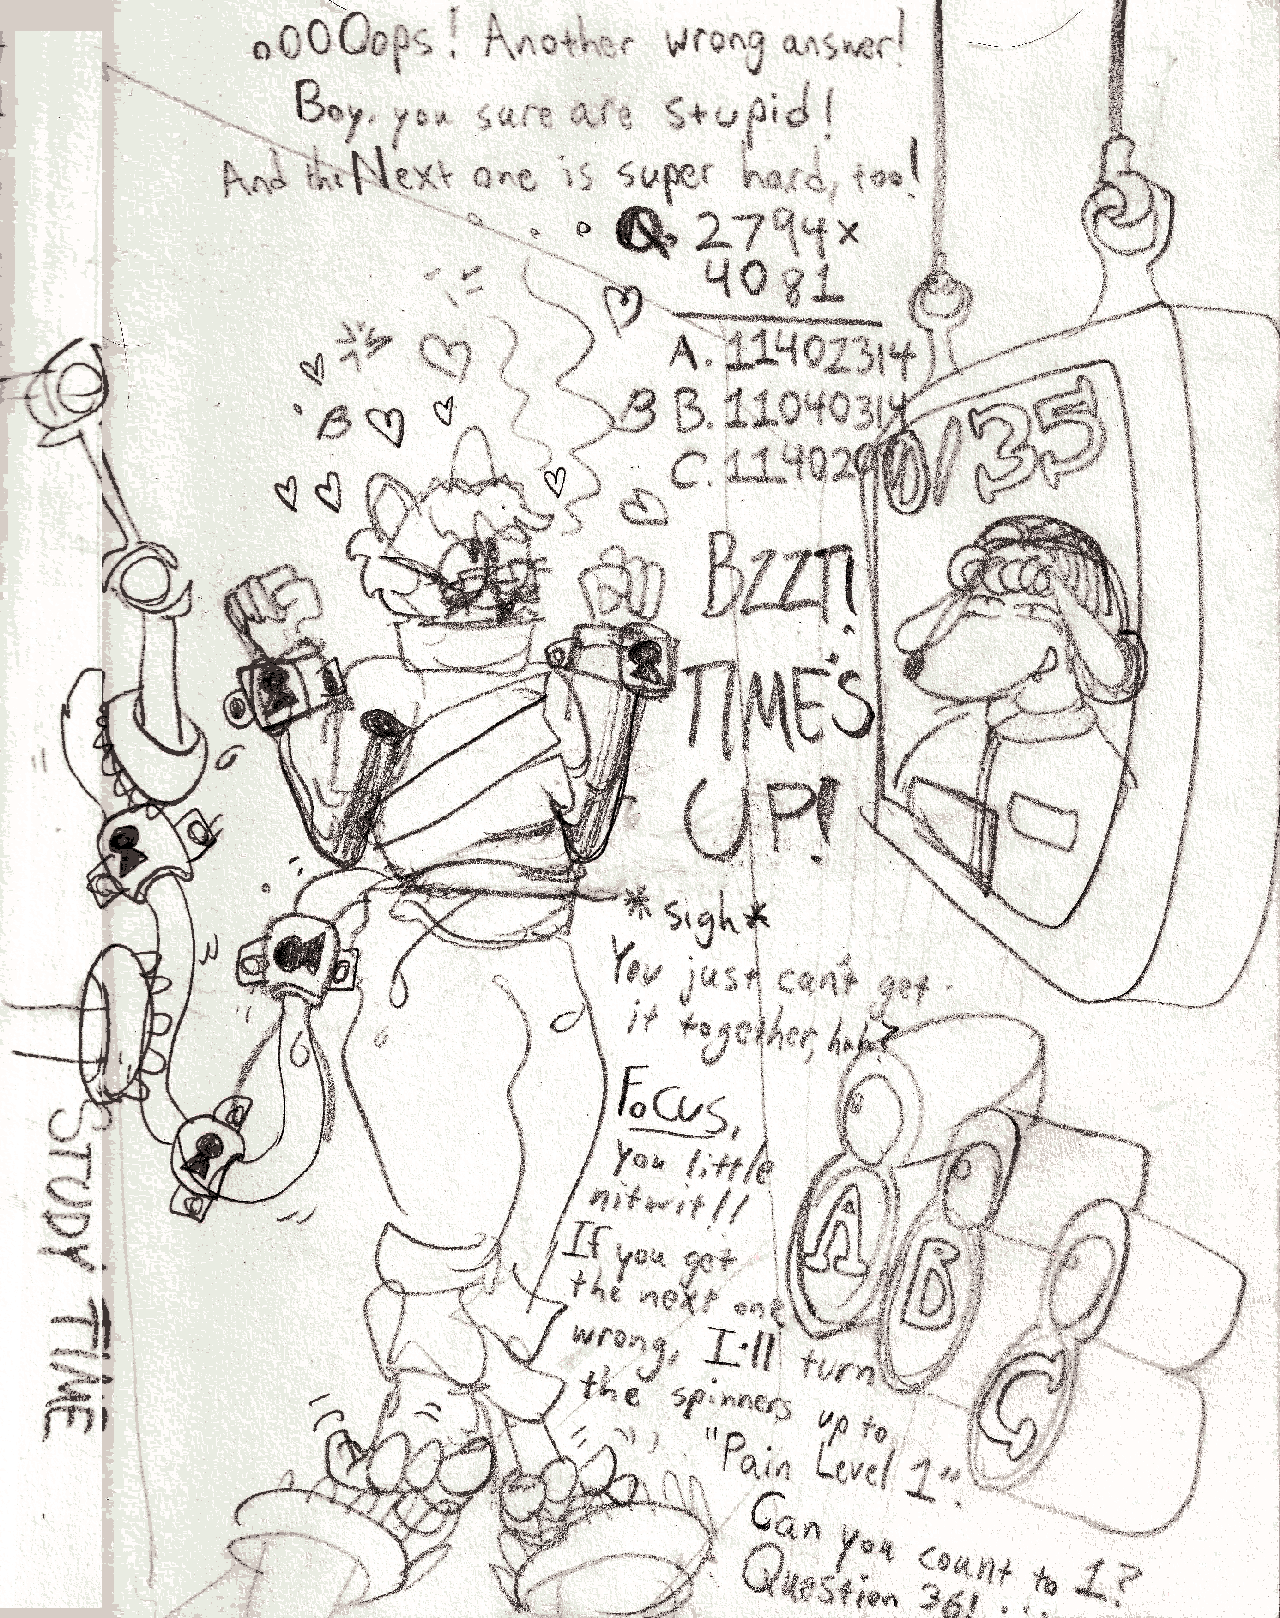 .oOOOops! Another wrong answer!
Boy, you sure are stupid!
And the Next one is super hard, too!
Q. 2794x
4081
A. 11402314
B. 11040314
C. 114020
0/35
BZZT!
TIME'S
UP!
*sigh*
You just can't get
it together, huh?
Focus,
you little
nitwit!!
If you get
the next one
wrong, I'll turn
the spinners up to
"Pain Level 1".
Can you count to 1?
Question 36! ...
A
B
C
STUDY TIME